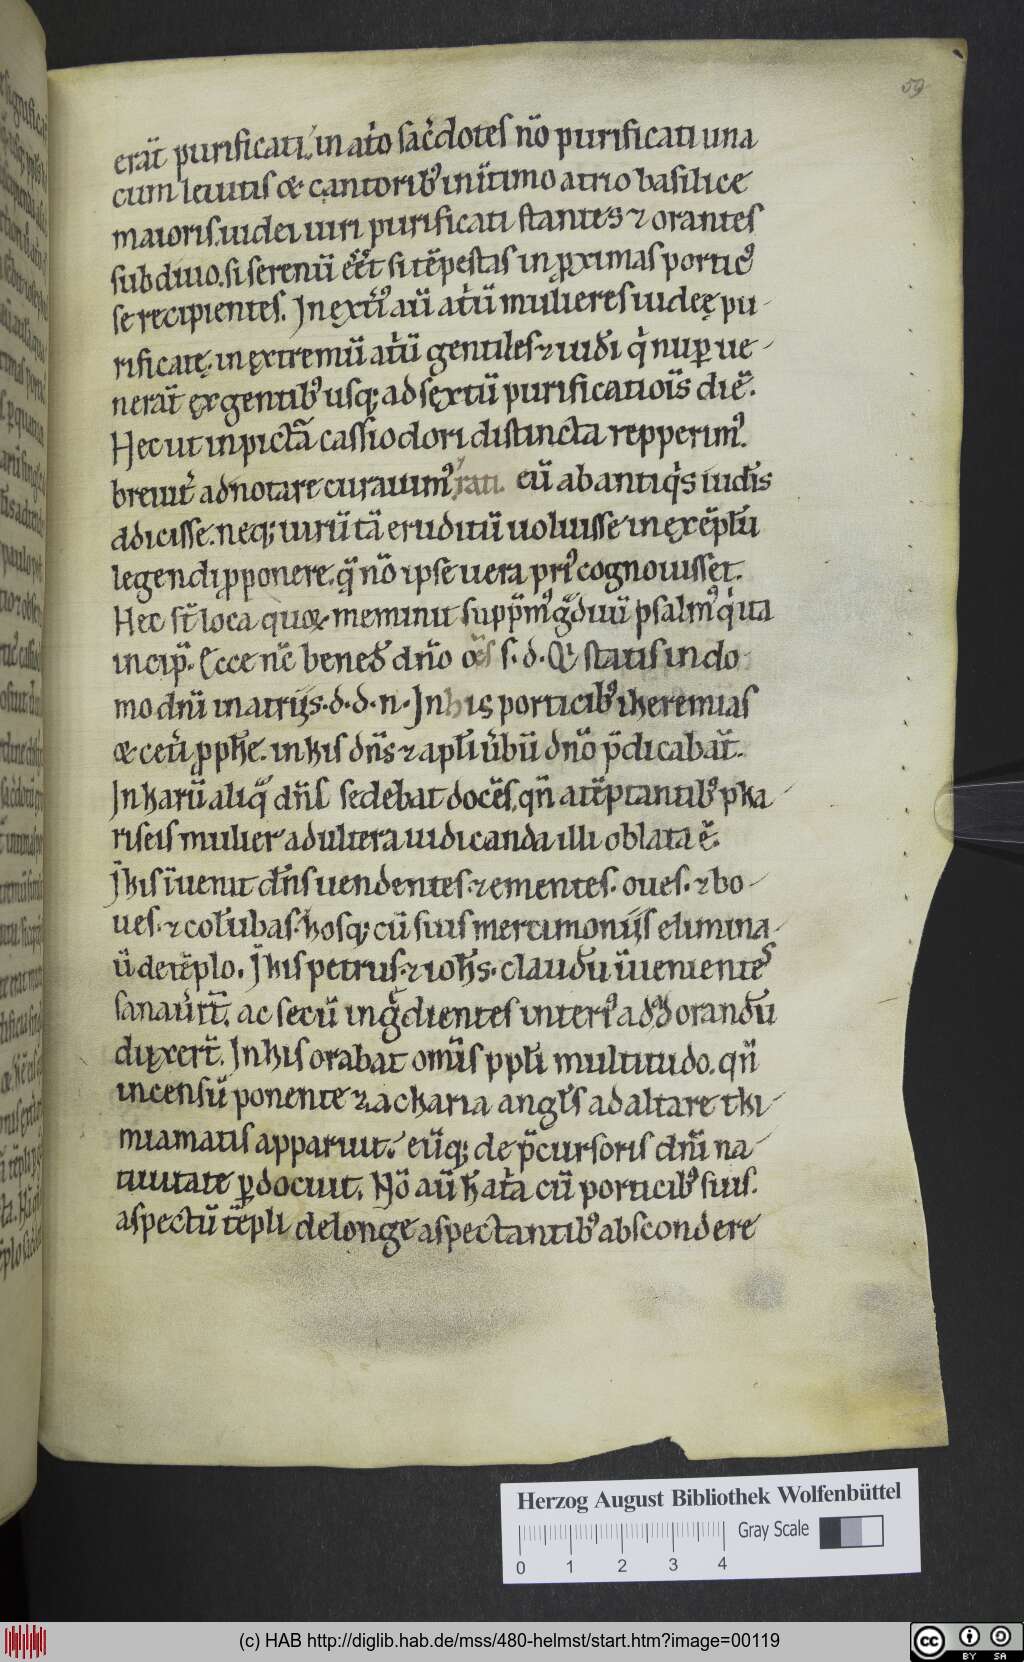 59
erāt purificati. in at̍o sac̄dotes nō purificati una
cum leuitis & cantoribꝰ in ītimo atrio basilicę
maioris. iudei uiri purificati stantes ⁊ orantes
sub diuo. si serenū eēt si tēpestas in ꝓximas porticꝰ
se recipientes. In ext̍iꝰ aū at̍ū mulieres iudeę pu-
rificatę. in ęxtremū at̍ū gentiles ⁊ iud̄i q̍ nuꝑ ue-
nerāt ęx gentibꝰ usq; ad sęxtū purificatiōis diē.
Hec ut in pictā cassiodori distincta repperimꝰ.
breuit̄ adnotare curauimꝰ rati. eū ab antiq̍s iud̄is
ddicisse. neq; uirū tā eruditū uoluisse in exēpl̄u
legendi ꝓponere. q̄ nō ipse uera priꝰ cognouisset.
Hec st̄ loca quoꝝ meminit supp̄mꝰ g̃duū psalmꝰ q̍ ita
incip̄. Ecce nc̄ bened̄ dn̄o oēs s. d. Qi statis in do
mo dn̄i in atrijs. d. d. n. In his porticibꝰ iheremias
& cet̄i ꝓph̄e. in his dn̄s ⁊ apl̄i u̍bū dn̄o p̄dicabāt.
In harū aliq̄ dn̄s sedebat docēs, qn̄ a tēptantibꝰ pha-
riseis mulier adultera iudicanda illi oblata ē.
J̄ his īuenit dn̄s uendentes. ⁊ ementes. oues. ⁊ bo-
ues. ⁊ col̄ubas. hosq; cū suis mertimonijs elimina-
ū de tēplo. J̄ his petrus. ⁊ ioh̄s. claud̄u īuenientes
sanau̍rt̄. ac secū ing̃dientes interiꝰ ad orand̄u
duxer̄t. In his orabat om̄is ppl̄i multitudo. qn̄
incensū ponente zacharia angl̄s ad altare thi-
miamatis apparuit. eūq; de p̄cursoris dn̄i na-
tiuitate ꝑdocuit. Nō aū h̄ at̍a cū porticibꝰ suis.
aspectū tēpli de longe aspectantibꝰ abscondere
Herzog August Bibliothek Wolfenbüttel
Gray Scale
0 1 2 3 4
(c) HAB http://diglib.hab.de/mss/480-helmst/start.htm?image=00119
cc BY SA